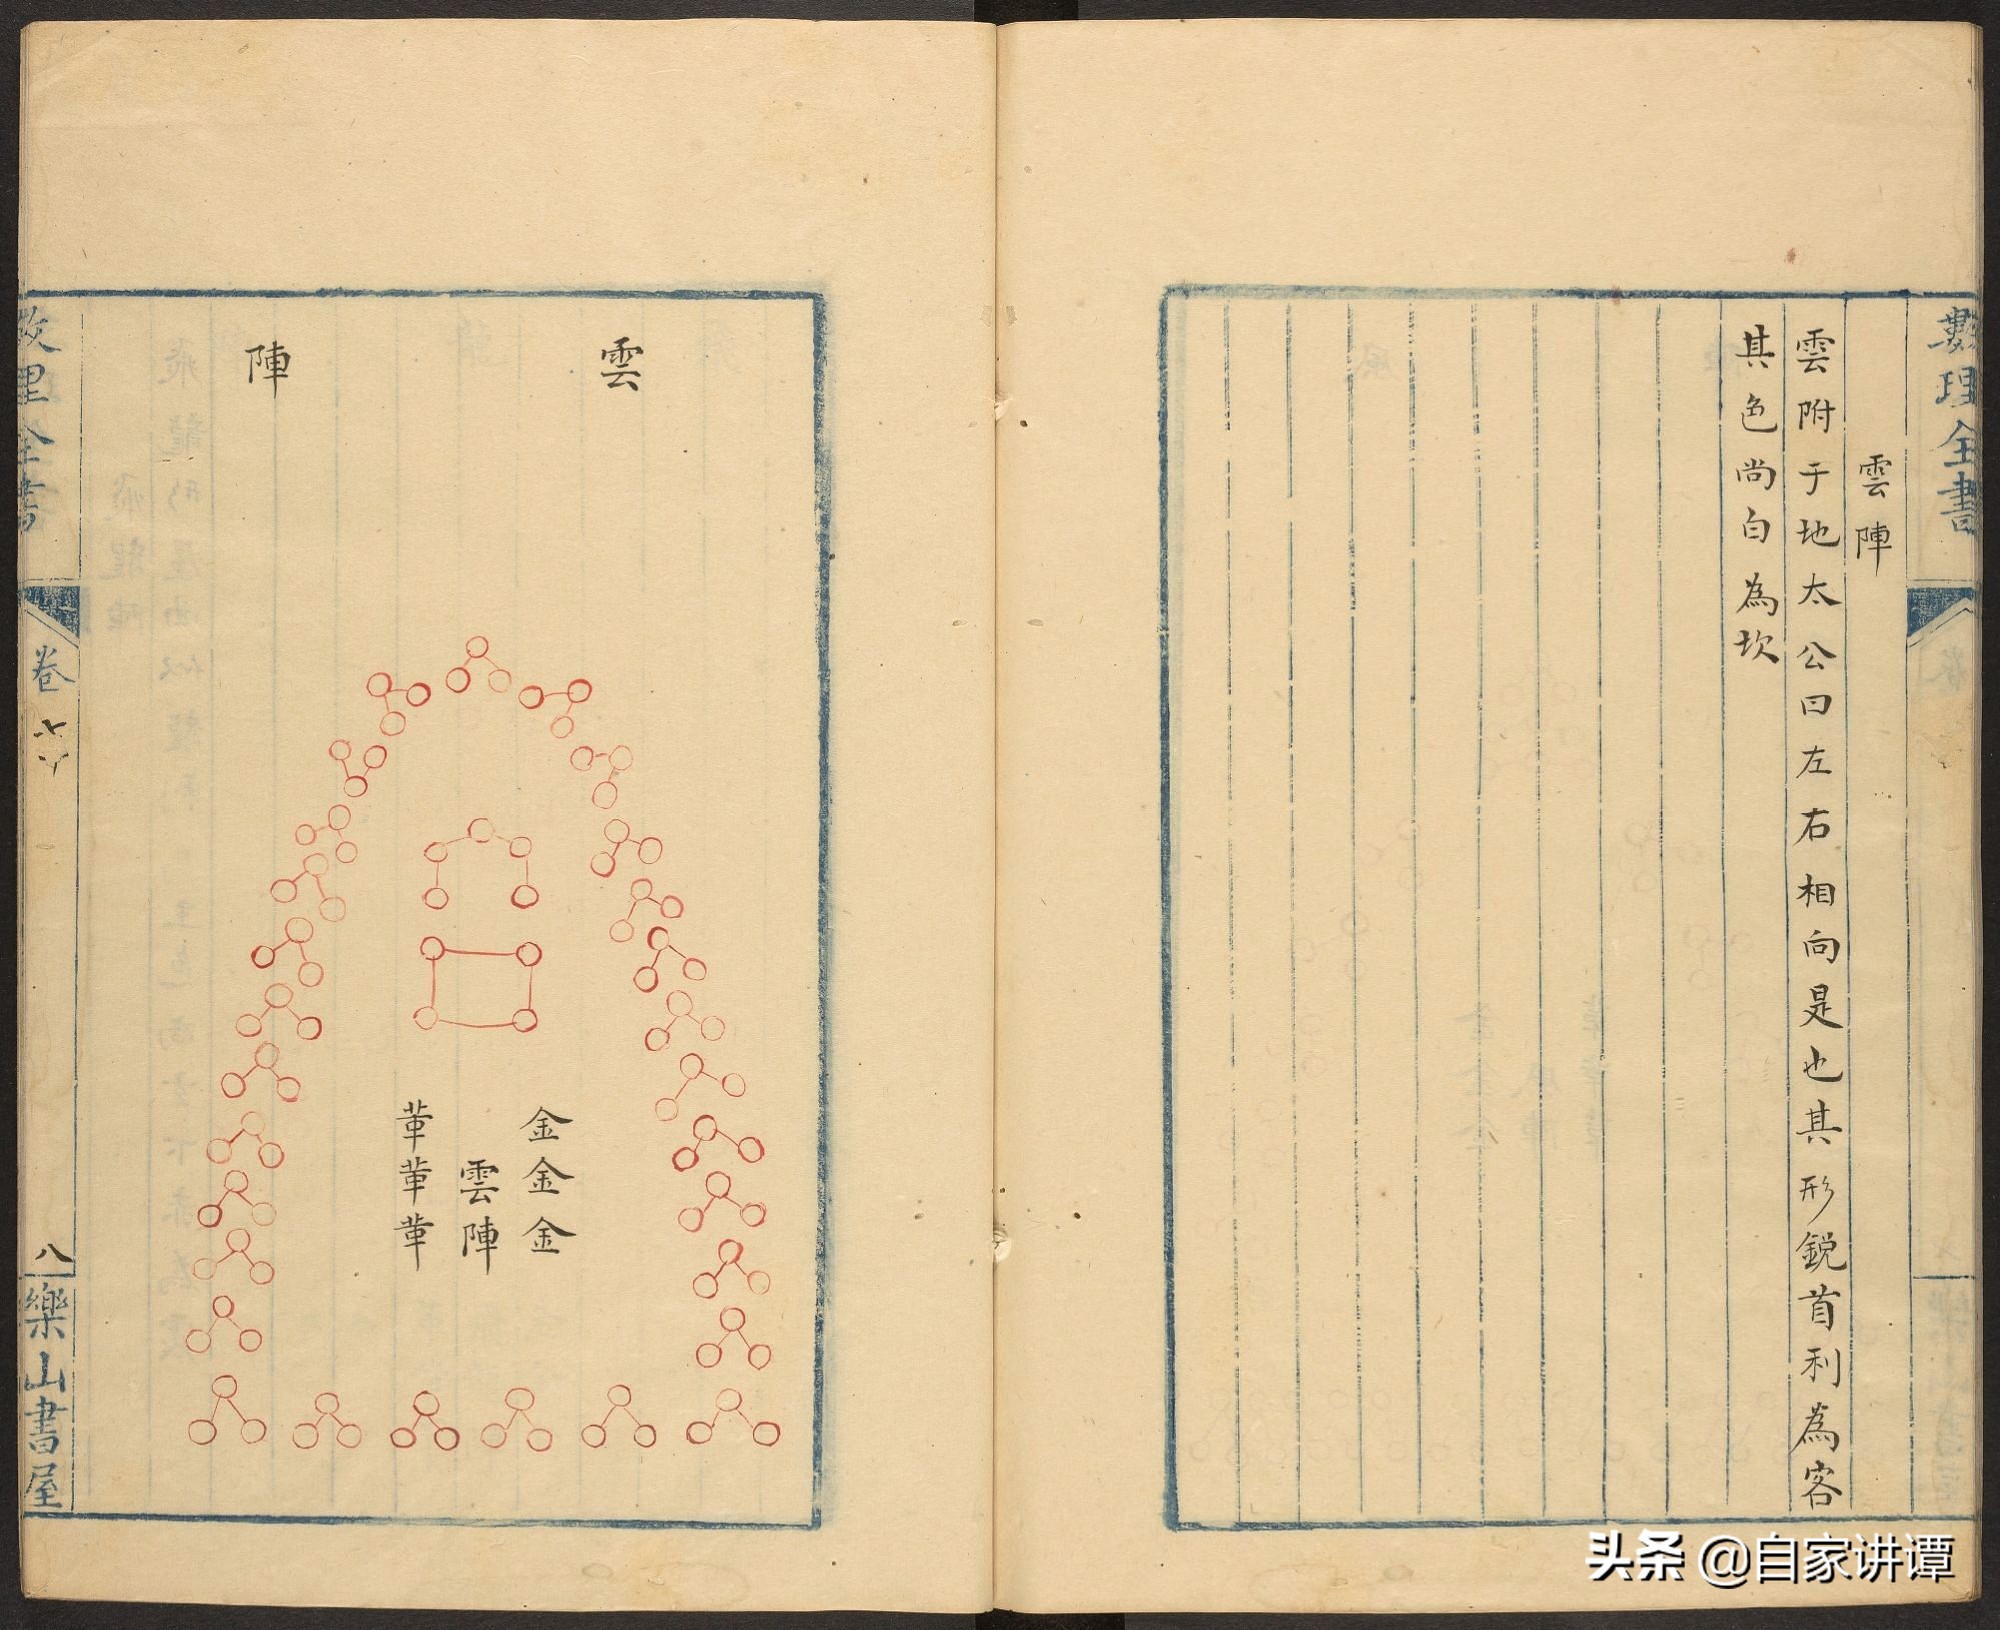 數理全書
雲陣
雲附于地太公曰左右相向是也其形銳首利為客
其色尚白為坎
雲陣
金金金
雲陣
革革革
數理全書
卷七
八
樂山書屋
头条 @自家讲谭